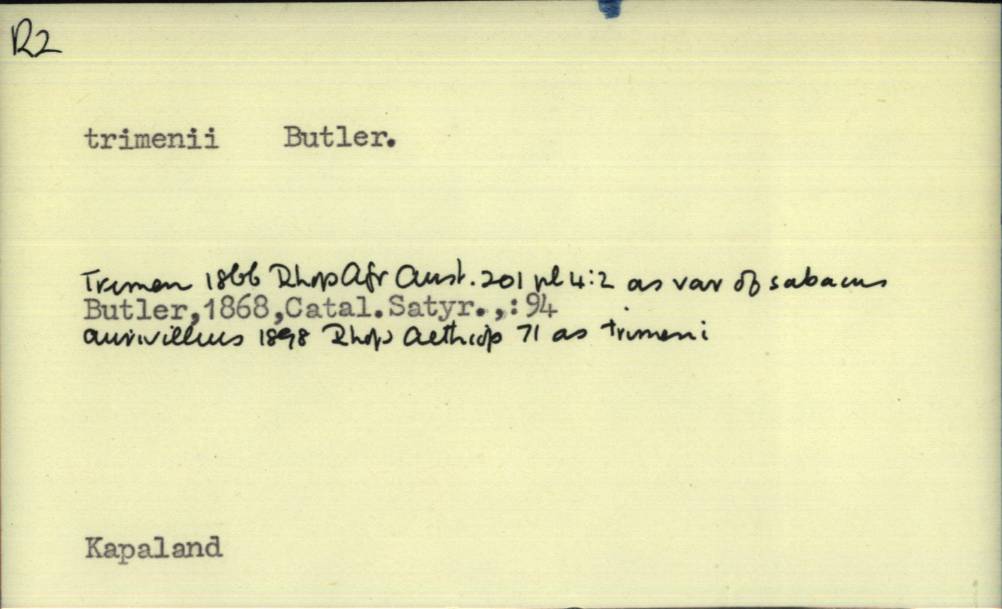 R2
trimenii Butler.
Trimen 1866 Rhop Afr Aust. 201 pl 4:2 as var of sabacus
Butler,1868,Catal.Satyr.,:94
Aurivillius 1898 Rhop Aethiop 71 as trimeni
Kapaland